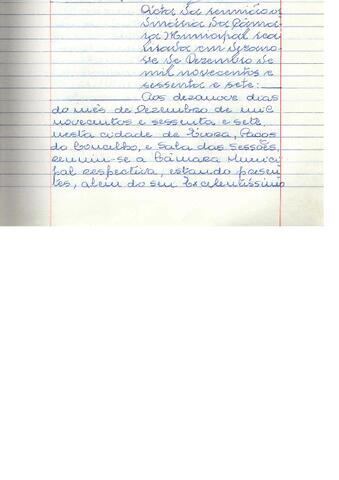 Acta da reunião or
dinária da Câma
ra Municipal rea
lisada em dezano
ve de Dezembro de
mil novecentos e
sessenta e sete:
Aos dezanove dias
do mês de Dezembro de mil
novecentos e sessenta e sete,
nesta cidade de Évora, Paços
do Concelho, e Sala das Sessões,
reuniu-se a Câmara Munici
pal respectiva, estando presen
tes, alem do seu Excelentíssimo